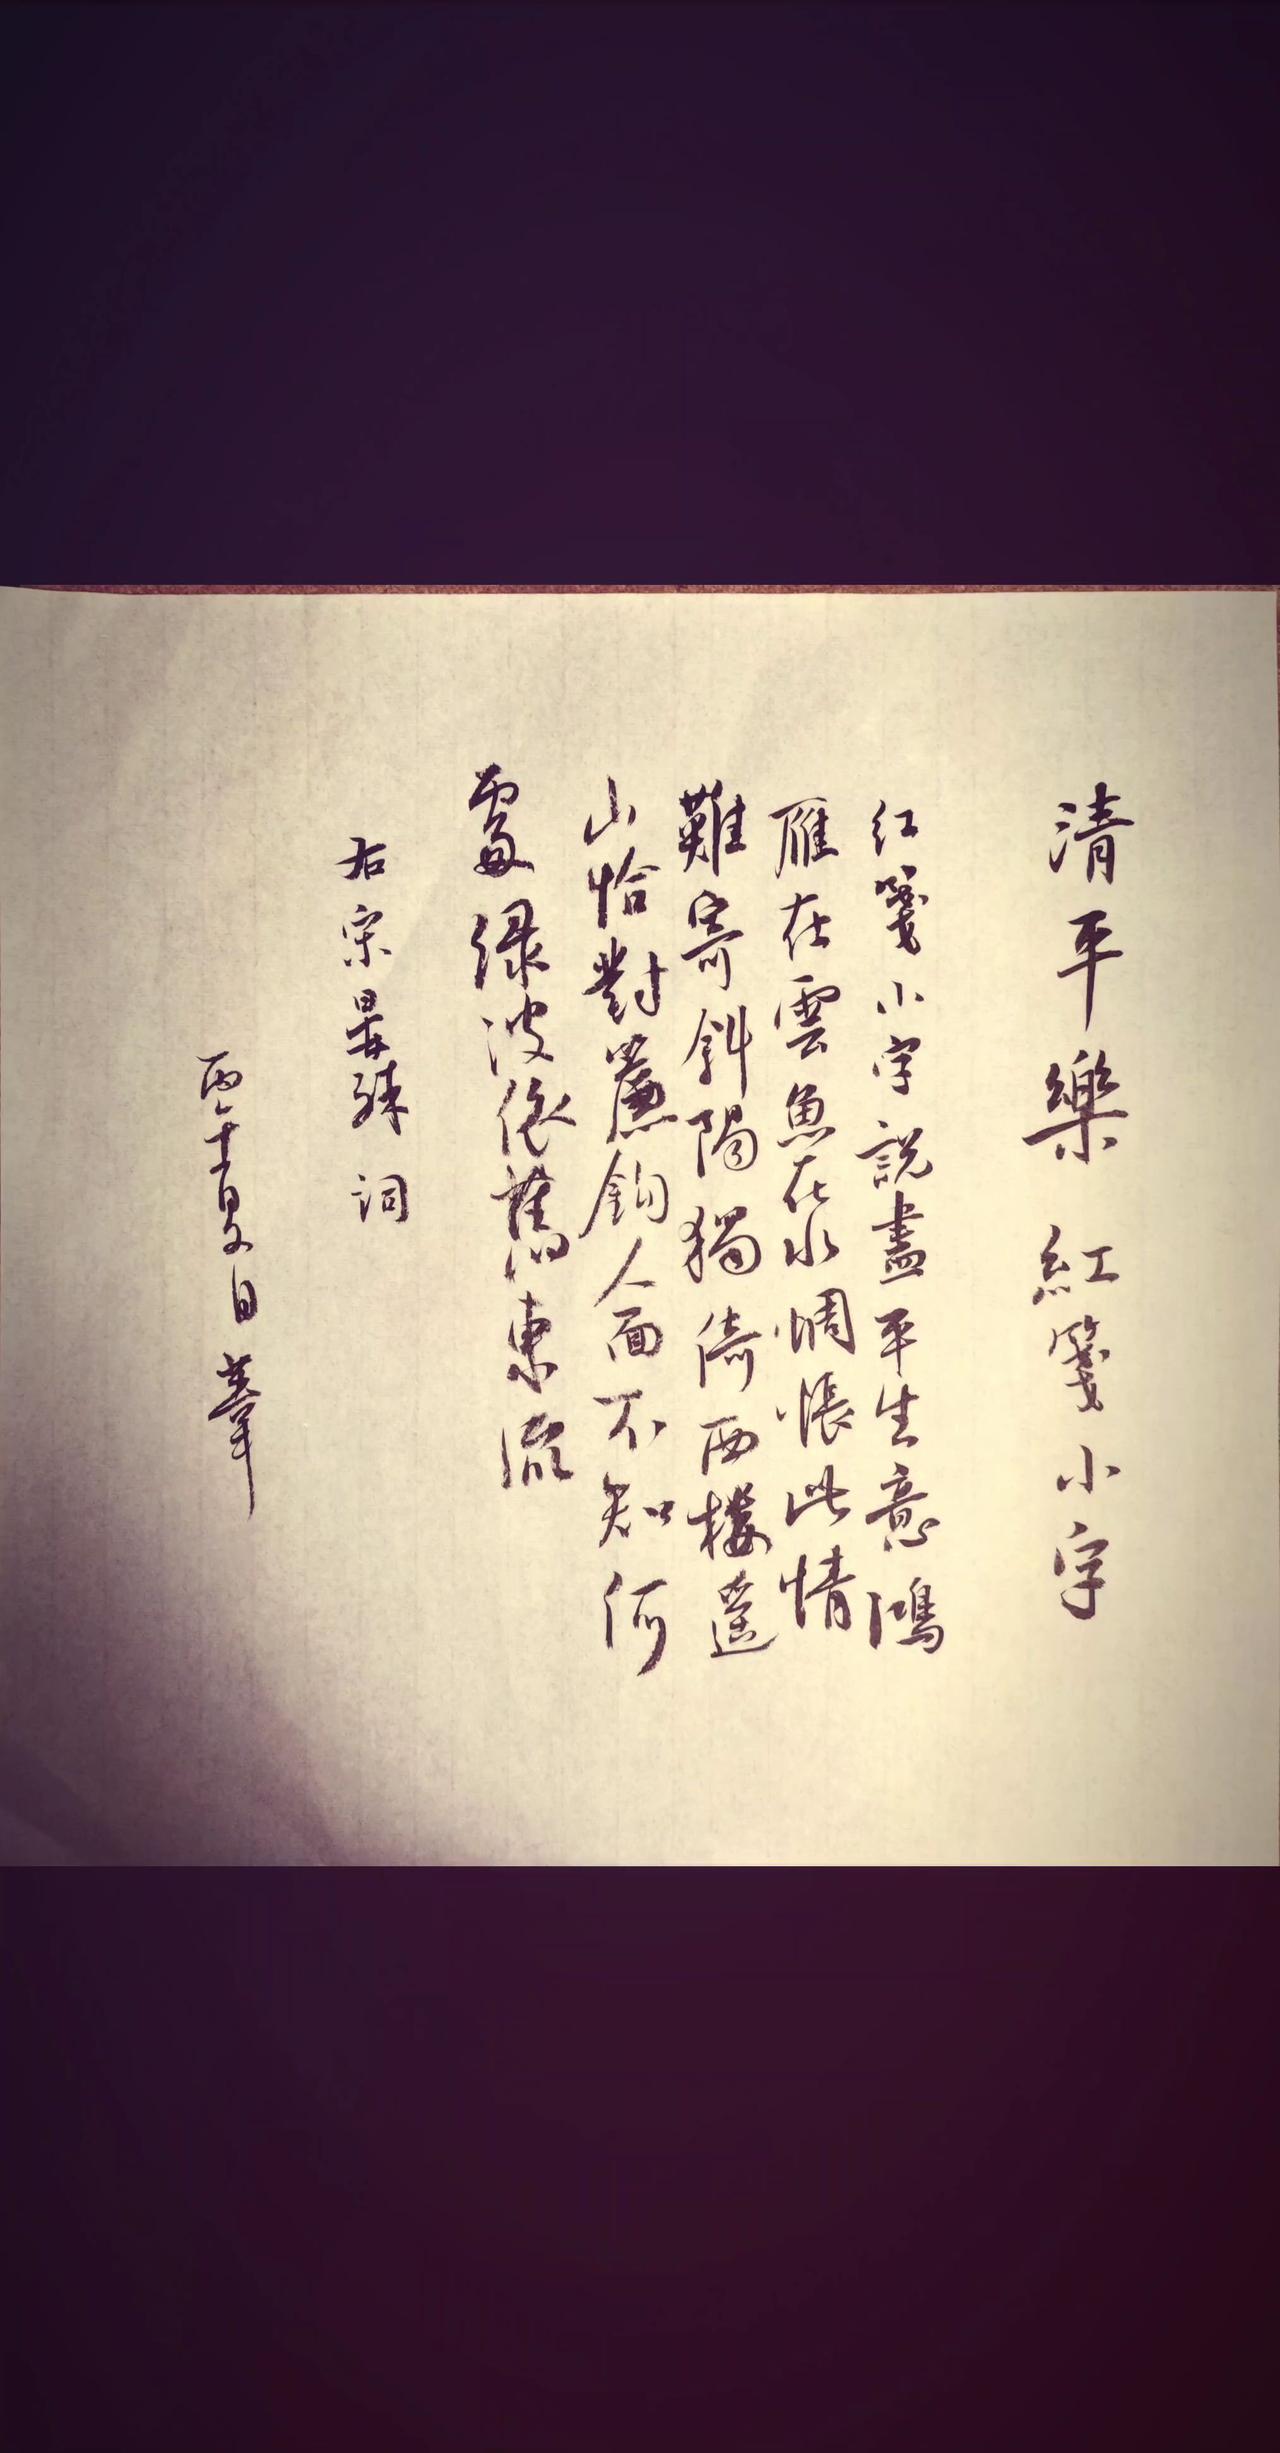 清平樂 紅箋小字
红箋小字說盡平生意鴻
雁在雲魚在水惆悵此情
難寄斜陽獨倚西樓遥
山恰對簾鈎人面不知何
處绿波依舊東流
右宋晏殊詞
丙午夏日